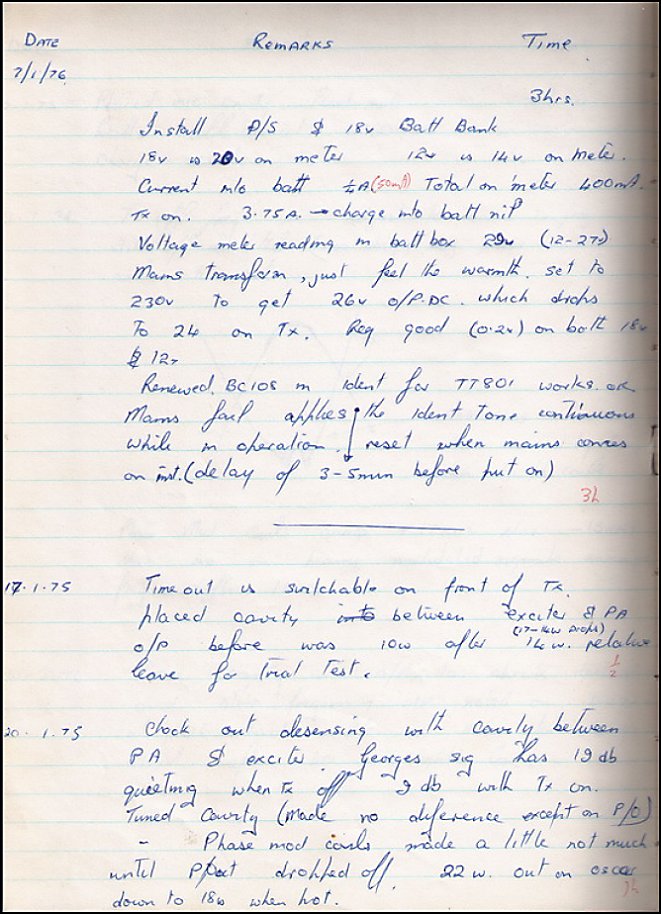 DATE REMARKS Time
7/1/76
3hrs.
Install P/S & 18v Batt Bank
18v is 20v on meter 12v is 14v on meter.
Current into batt ½A (50mA) Total on meter 400mA.
Tx on. 3.75A. → charge into batt nil
Voltage meter reading in batt box 29v (12-27v)
Mains transform, just feel the warmth. set to
230v to get 26v o/p. DC. which drops
to 24 on Tx. Reg good (0.2v) on both 18v
& 12v
Renewed. BC108 in ident for TT801 works. ok
Mains fail applies the ident tone continuous
while in operation. reset when mains comes
on inst. (delay of 3-5min before put on)
3h
17.1.75 Time out is switchable on front of Tx.
placed cavity into between exciter & PA
(17-14w drops)
o/p before was 10w after 14w. relative
leave for Trial Test. 1/2
20.1.75 Check out desensing with cavity between
PA & exciter. Georges sig has 19 db
quieting when Tx off 9 db with Tx on.
Tuned Cavity (made no difference except on P/O)
- Phase mod coils made a little not much
until P/out dropped off. 22 w. out on oscar
down to 18w when hot. 3h